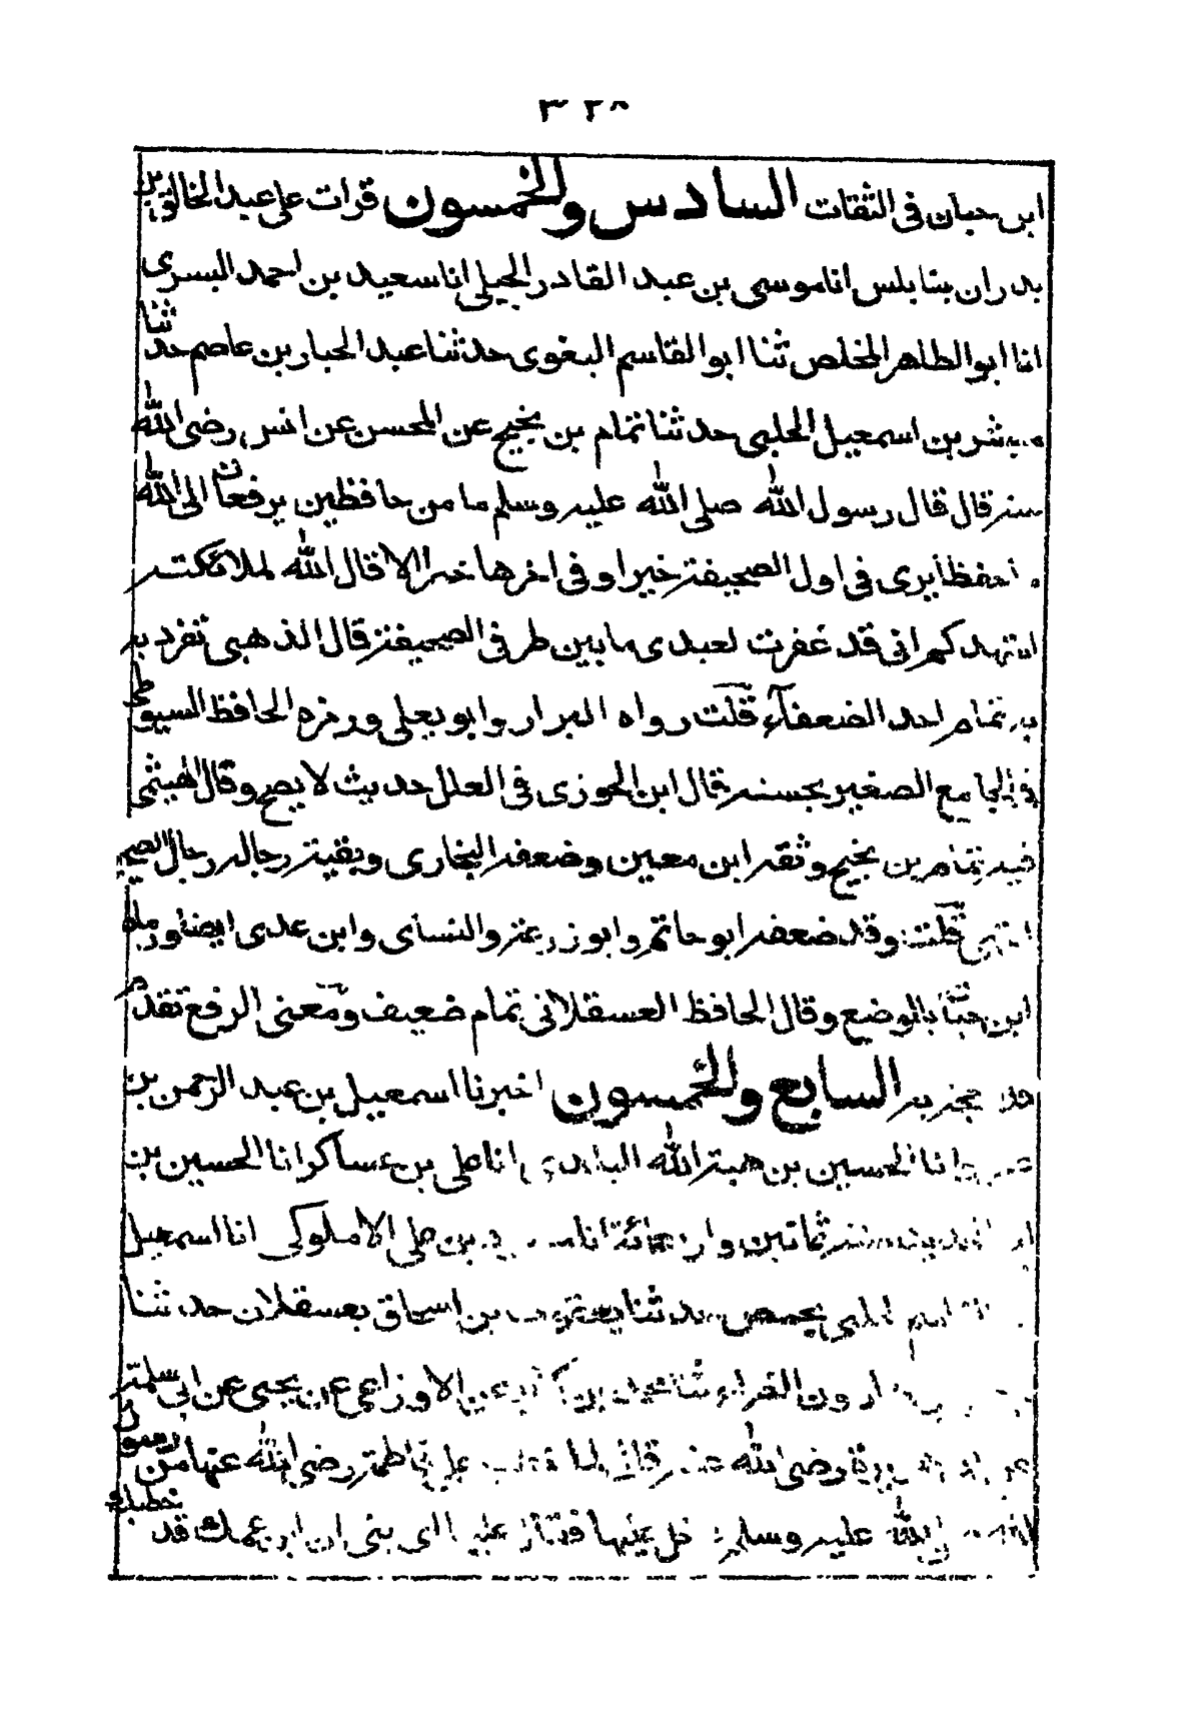 ٣٢٨
ابن حبان فى الثقات السادس والخمسون قرات على عبد الخالق بن
بدران بنابلس انا موسى بن عبد القادر الجيلى انا سعيد بن احمد البسرى
انا ابو الطاهر المخلص ثنا ابو القاسم البغوى حدثنا عبد الجبار بن عاصم حدثنا
مبشر بن اسمعيل الحلبى حدثنا تمام بن نجيح عن الحسن عن انس رضى الله
عنه قال قال رسول الله صلى الله عليه وسلم ما من حافظين يرفعان الى الله
ما حفظا يرى فى اول الصحيفة خيرا وفى اخرها خيرا الا قال الله لملائكته
اشهدكم انى قد غفرت لعبدى ما بين طرفى الصحيفة قال الذهبى تفرد به
تمام احد الضعفآء قلت رواه البزار وابو يعلى ورمزه الحافظ السيوطى
فى الجامع الصغير بحسنه قال ابن الجوزى فى العلل حديث لا يصح وقال الهيثمى
فيه تمام بن نجيح وثقه ابن معين وضعفه البخارى وبقية رجاله رجال الصحيح
انتهى قلت وقد ضعفه ابو حاتم وابو زرعة والنسأى وابن عدى ايضا ورماه
ابن حبان بالوضع وقال الحافظ العسقلانى تمام ضعيف ومعنى الرفع تقدم
السابع والخمسون اخبرنا اسمعيل بن عبد الرحمن بن
انا الحسين بن هبة الله انا على بن عساكر انا الحسين بن
ثمانين واربعمائة انا بن على الاملوكى انا اسمعيل
الحلبى بحمص حدثنا يعقوب بن اسحاق بعسقلان حدثنا
الفراء ثنا عن الاوزاعى عن يحيى عن ابى سلمة
رضى الله عنه قال لما خطب على فاطمة رضى الله عنها من رسول
الله عليه وسلم دخل عليها فقال اى بنى ان ابن عمك قد خطبك